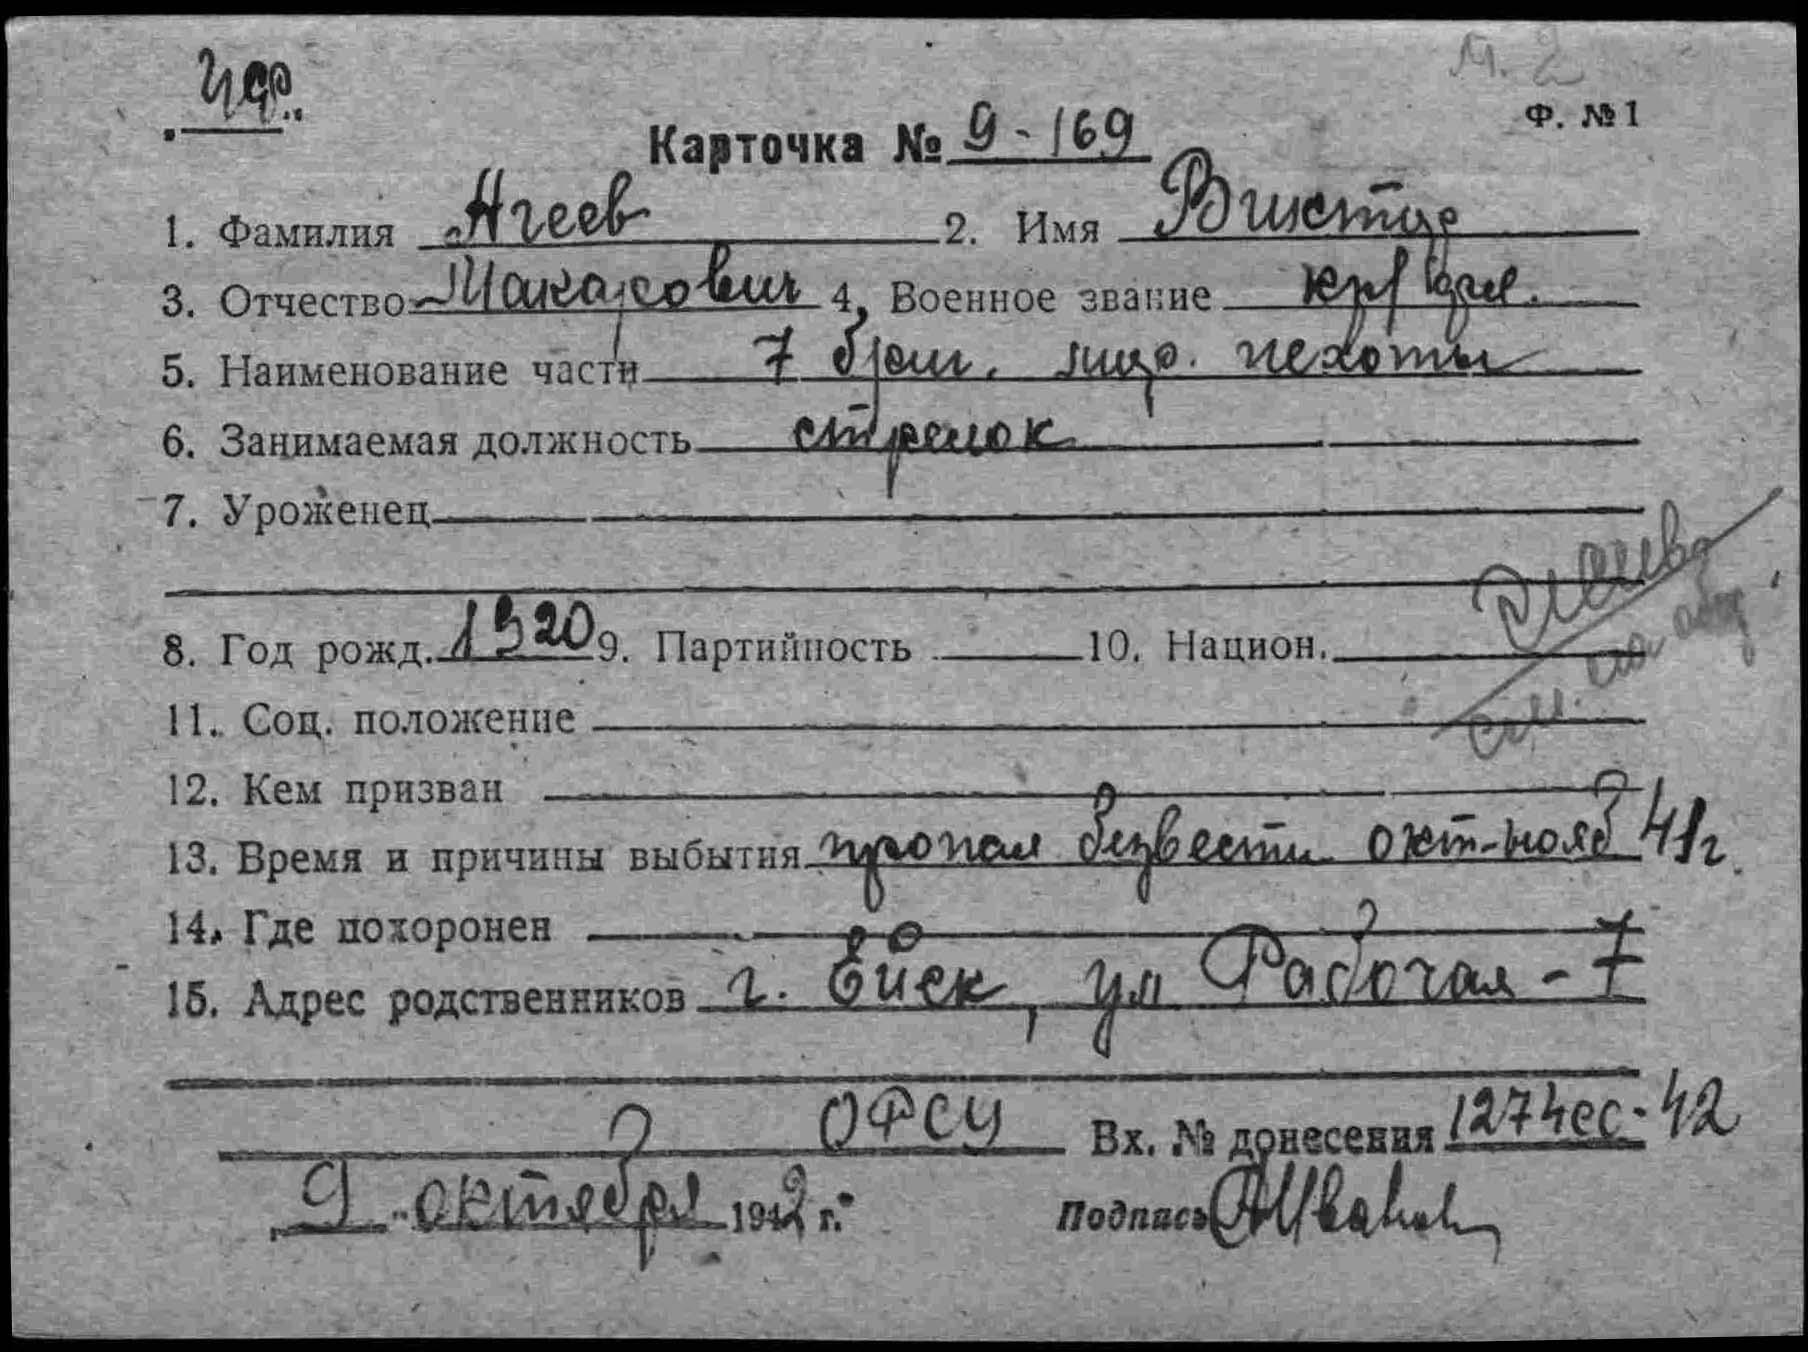 Ф. №1
Карточка № 9-169
1. Фамилия Агеев 2. Имя Виктор
3. Отчество Макарович 4. Военное звание кр/
5. Наименование части 7 бриг. мор. пехоты
6. Занимаемая должность стрелок
7. Уроженец
8. Год рожд. 1920 9. Партийность 10. Национ.
11. Соц. положение
12. Кем призван
13. Время и причины выбытия пропал безвести окт-нояб 41г.
14. Где похоронен
15. Адрес родственников г. Ейск, ул Рабочая - 7
ОФСУ Вх. № донесения 1274сс-42
9 октября 1942 г. Подпись